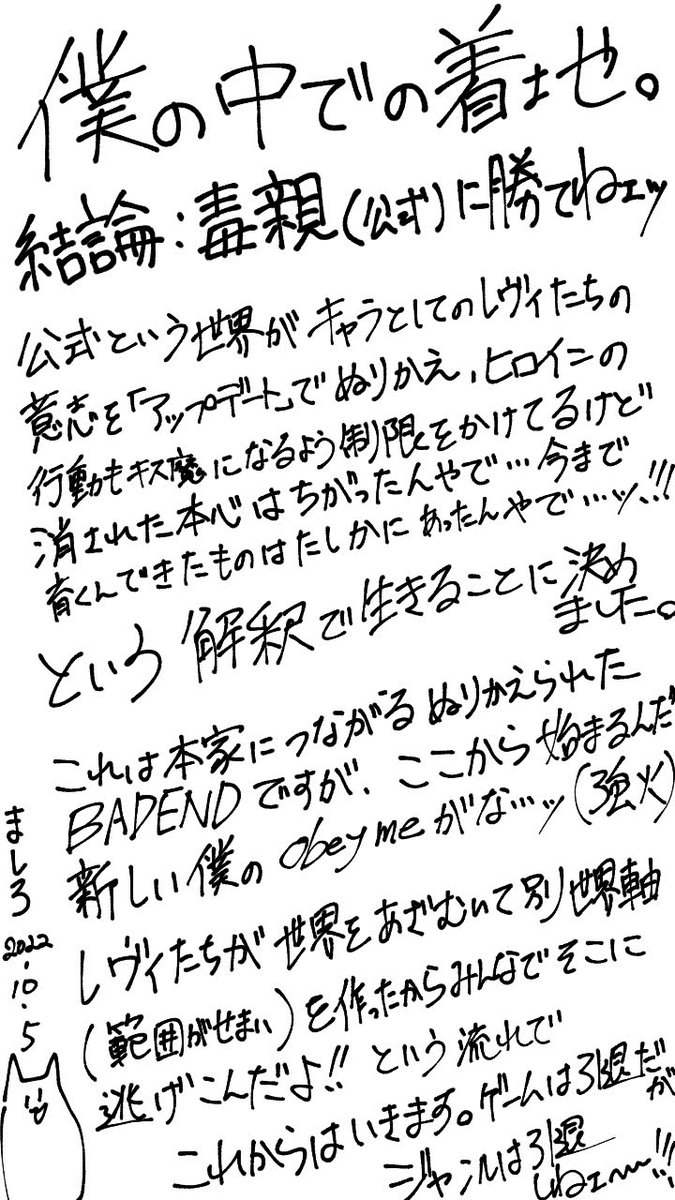 僕の中での着地。
結論:毒親(公式)に勝てねェッ
公式という世界がキャラとしてのレヴィたちの
意志を「アップデート」でぬりかえ、ヒロインの
行動もキス魔になるよう制限をかけてるけど
消された本心はちがったんやで…今まで
育くんできたものはたしかにあったんやで…ッ!!!
という解釈で生きることに決め
ました。
これは本家につながるぬりかえられた
BADENDですが、ここから始まるんだ
新しい僕のobeymeがな…ッ(強火)
レヴィたちが世界をあざむいて別世界軸
(範囲がせまい)を作ったからみんなでそこに
逃げこんだよ!!という流れで
これからはいきます。ゲームは引退だが
ジャンルは引退
しねェ〜!!!
ましろ
2022
・10・5